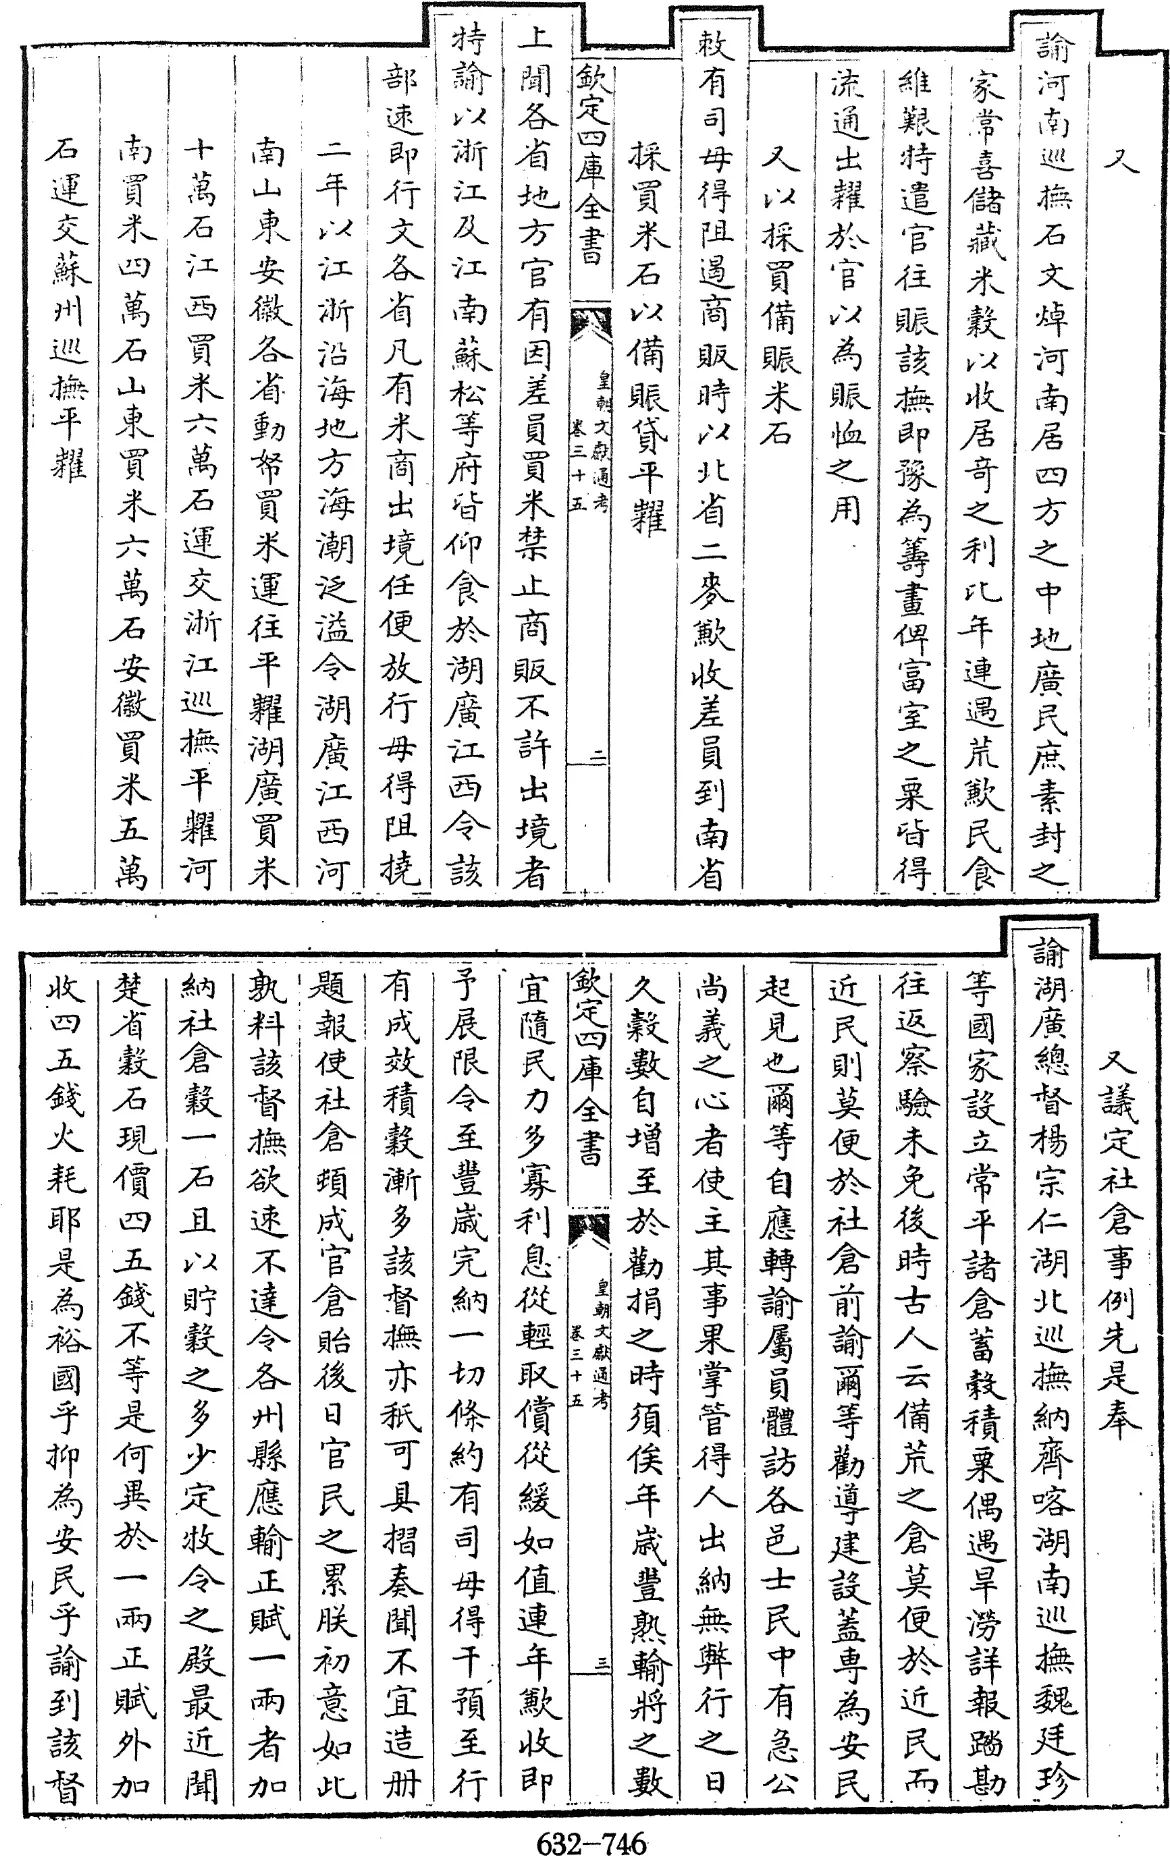 又
諭河南巡撫石文焯河南居四方之中地廣民庶素封之
家常喜儲藏米穀以收居奇之利比年連遇荒歉民食
維艱特遣官往賑該撫即豫為籌畫俾富室之粟皆得
流通出糶於官以為賑恤之用
又以採買備賑米石
敕有司毋得阻遏商販時以北省二麥歉收差員到南省
採買米石以備賑貸平糶
欽定四庫全書
皇朝文獻通考
卷三十五
二
上聞各省地方官有因差員買米禁止商販不許出境者
特諭以浙江及江南蘇松等府皆仰食於湖廣江西令該
部速即行文各省凡有米商出境任便放行毋得阻撓
二年以江浙沿海地方海潮泛溢令湖廣江西河
南山東安徽各省動帑買米運往平糶湖廣買米
十萬石江西買米六萬石運交浙江巡撫平糶河
南買米四萬石山東買米六萬石安徽買米五萬
石運交蘇州巡撫平糶
又議定社倉事例先是奉
諭湖廣總督楊宗仁湖北巡撫納齊喀湖南巡撫魏廷珍
等國家設立常平諸倉蓄穀積粟偶遇旱澇詳報踏勘
往返察驗未免後時古人云備荒之倉莫便於近民而
近民則莫便於社倉前諭爾等勸導建設蓋專為安民
起見也爾等自應轉諭屬員體訪各邑士民中有急公
尚義之心者使主其事果掌管得人出納無弊行之日
久穀數自增至於勸捐之時須俟年歲豐熟輸將之數
欽定四庫全書
皇朝文獻通考
卷三十五
三
宜隨民力多寡利息從輕取償從緩如值連年歉收即
予展限令至豐歲完納一切條約有司毋得干預至行
有成效積穀漸多該督撫亦秖可具摺奏聞不宜造册
題報使社倉頓成官倉貽後日官民之累朕初意如此
孰料該督撫欲速不達令各州縣應輸正賦一兩者加
納社倉穀一石且以貯穀之多少定牧令之殿最近聞
楚省穀石現價四五錢不等是何異於一兩正賦外加
收四五錢火耗耶是為裕國乎抑為安民乎諭到該督
632-746